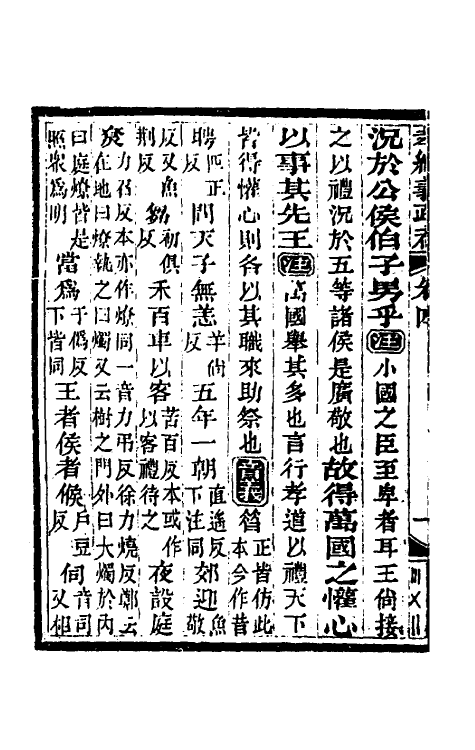 況於公侯伯子男乎注小國之臣至卑者耳王尙接
之以禮況於五等諸侯是廣敬也故得萬國之懽心
以事其先王注萬國舉其多也言行孝道以禮天下
皆得懽心則各以其職來助祭也音義正皆仿此本今作昔
聘匹正反問天子無恙羊尙反五年一朝直遙反下注同郊迎魚敬
反又魚荆反芻初俱反禾百車以客苦百反本或作以客禮待之夜設庭
尞力召反本亦作燎同一音力弔反徐力燒反鄭云在地曰燎執之曰燭又云樹之門外曰大燭於內
曰庭燎皆是照衆爲明當爲于僞反下皆同王者侯者候戶豆反伺音司又相